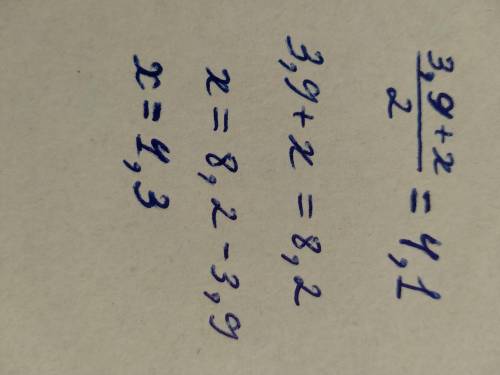 (3,9 + x)/2 = 4,1
3,9 + x = 8,2
x = 8,2 - 3,9
x = 4,3